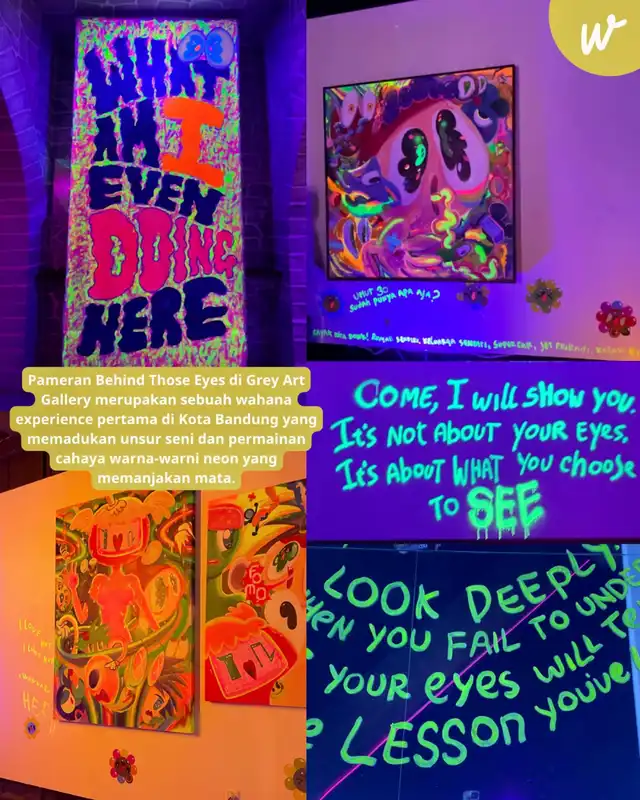 w
WHAT
AM I
EVEN
DOING
HERE
UMUR 30
SUDAH PUNYA APA AJA?
Pameran Behind Those Eyes di Grey Art
Gallery merupakan sebuah wahana
experience pertama di Kota Bandung yang
memadukan unsur seni dan permainan
cahaya warna-warni neon yang
memanjakan mata.
COME, I WILL SHOW YOU.
It's NOT ABOUT YOUR EYES.
It's ABOUT WHAT YOU CHOOSE
TO SEE
FOMO
LOOK DEEPLY
WHEN YOU FAIL TO UNDE
YOUR EYES WILL TE
LESSON YOU'VE